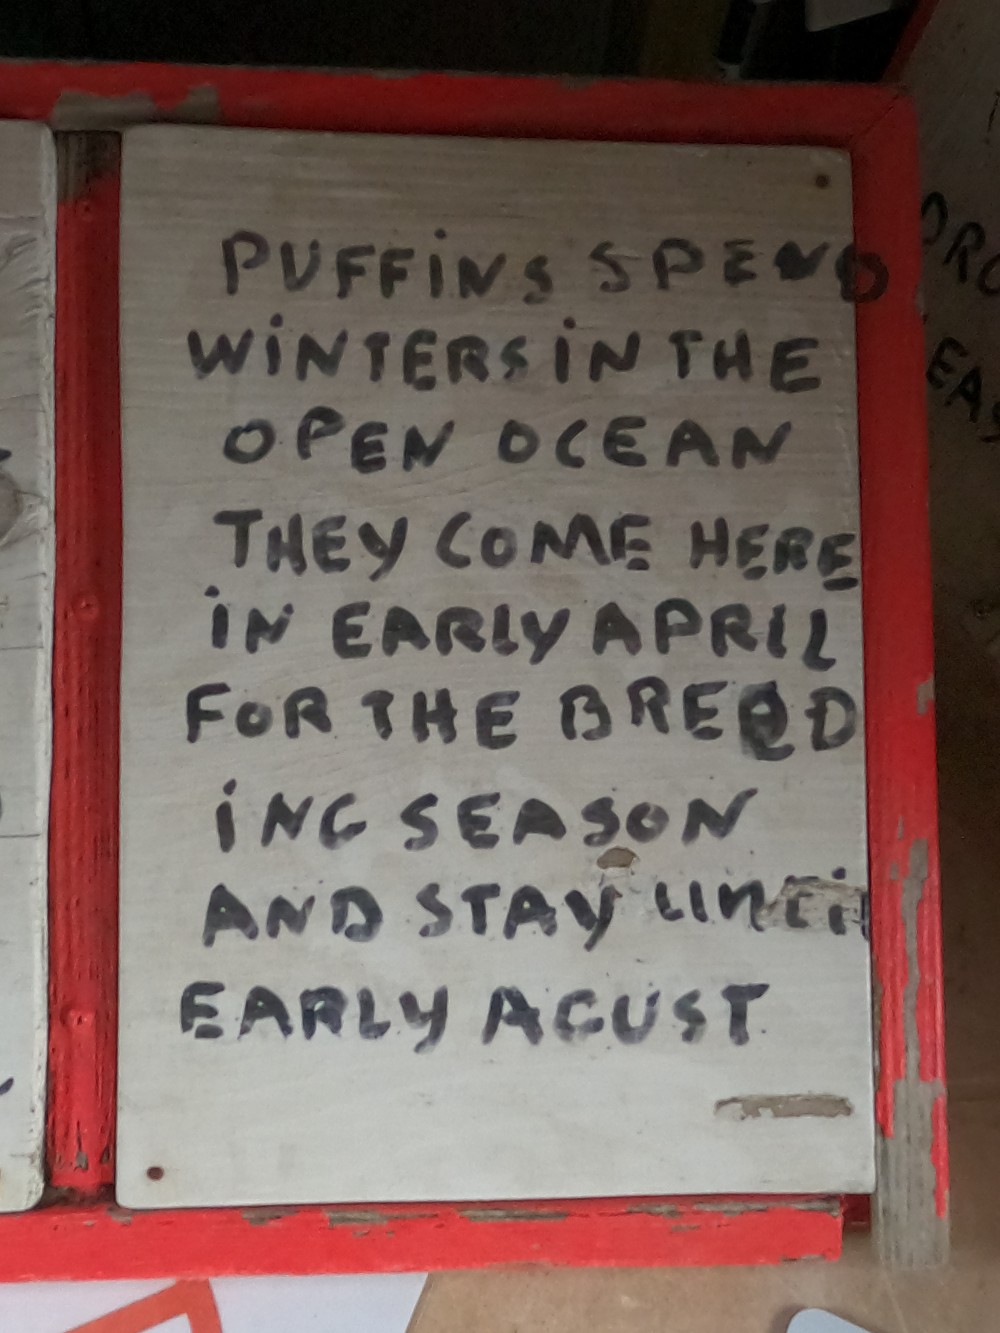 PUFFINS SPEND
WINTERS IN THE
OPEN OCEAN
THEY COME HERE
IN EARLY APRIL
FOR THE BREED
ING SEASON
AND STAY UNTIL
EARLY AGUST